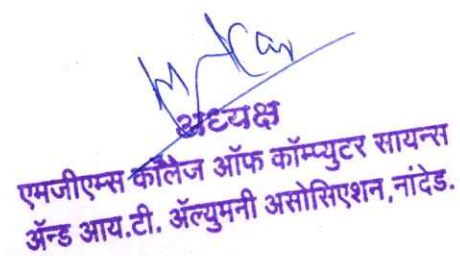 अध्यक्ष
एमजीएम्स कॉलेज ऑफ कॉम्प्युटर सायन्स
ॲन्ड आय.टी. ॲल्युमनी असोसिएशन,नांदेड.